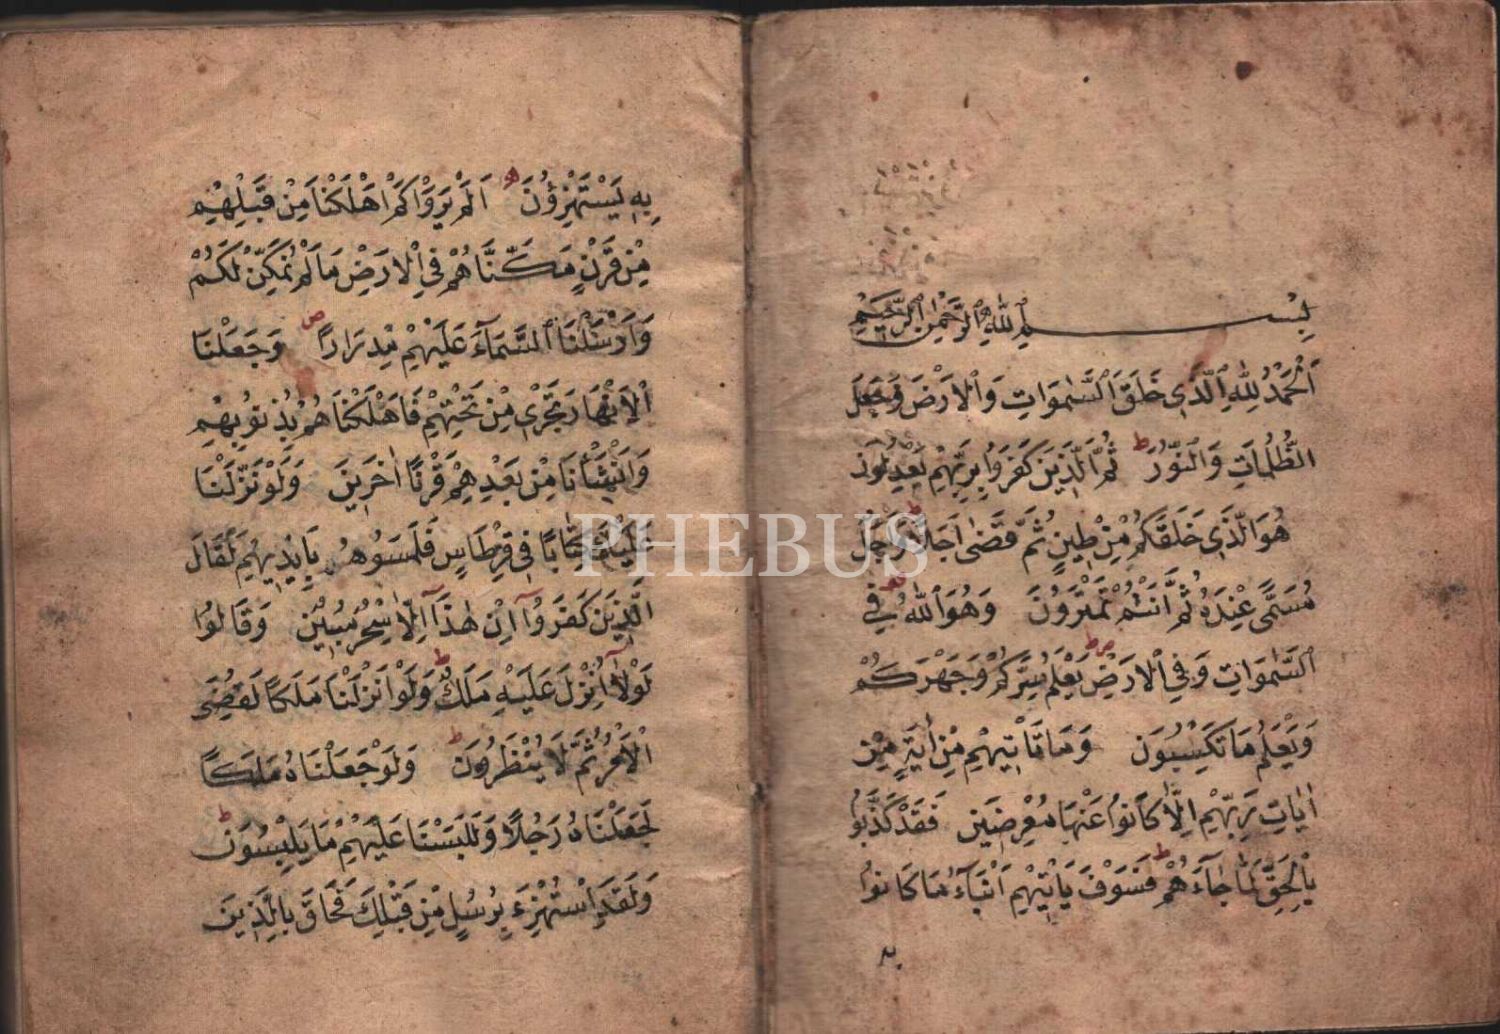 بِسْمِ اللّٰهِ الرَّحْمٰنِ الرَّحِيمِ
اَلْحَمْدُ لِلّٰهِ الَّذِى خَلَقَ السَّمٰوَاتِ وَالْاَرْضَ وَجَعَلَ
الظُّلُمَاتِ وَالنُّورَ ط ثُمَّ الَّذِينَ كَفَرُوا بِرَبِّهِمْ يَعْدِلُونَ
هُوَ الَّذِى خَلَقَكُمْ مِنْ طِينٍ ثُمَّ قَضٰى اَجَلًا ط وَاَجَلٌ
مُسَمًّى عِنْدَهُ ثُمَّ اَنْتُمْ تَمْتَرُونَ وَهُوَ اللّٰهُ فِى
السَّمٰوَاتِ وَفِى الْاَرْضِ ط يَعْلَمُ سِرَّكُمْ وَجَهْرَكُمْ
وَيَعْلَمُ مَا تَكْسِبُونَ وَمَا تَاْتِيهِمْ مِنْ اٰيَةٍ مِنْ
اٰيَاتِ رَبِّهِمْ اِلَّا كَانُوا عَنْهَا مُعْرِضِينَ فَقَدْ كَذَّبُوا
بِالْحَقِّ لَمَّا جَاءَهُمْ ط فَسَوْفَ يَاْتِيهِمْ اَنْبَاءُ مَا كَانُوا
به
بِهِ يَسْتَهْزِؤُنَ اَلَمْ يَرَوْا كَمْ اَهْلَكْنَا مِنْ قَبْلِهِمْ
مِنْ قَرْنٍ مَكَّنَّاهُمْ فِى الْاَرْضِ مَا لَمْ نُمَكِّنْ لَكُمْ
وَاَرْسَلْنَا السَّمَاءَ عَلَيْهِمْ مِدْرَارًا ص وَجَعَلْنَا
الْاَنْهَارَ تَجْرِى مِنْ تَحْتِهِمْ فَاَهْلَكْنَاهُمْ بِذُنُوبِهِمْ
وَاَنْشَاْنَا مِنْ بَعْدِهِمْ قَرْنًا اٰخَرِينَ وَلَوْ نَزَّلْنَا
عَلَيْكَ كِتَابًا فِى قِرْطَاسٍ فَلَمَسُوهُ بِاَيْدِيهِمْ لَقَالَ
الَّذِينَ كَفَرُوا اِنْ هٰذَا اِلَّا سِحْرٌ مُبِينٌ وَقَالُوا
لَوْلَا اُنْزِلَ عَلَيْهِ مَلَكٌ ط وَلَوْ اَنْزَلْنَا مَلَكًا لَقُضِىَ
الْاَمْرُ ثُمَّ لَا يُنْظَرُونَ ط وَلَوْ جَعَلْنَاهُ مَلَكًا
لَجَعَلْنَاهُ رَجُلًا وَلَلَبَسْنَا عَلَيْهِمْ مَا يَلْبِسُونَ ط
وَلَقَدِ اسْتُهْزِئَ بِرُسُلٍ مِنْ قَبْلِكَ فَحَاقَ بِالَّذِينَ
PHEBUS